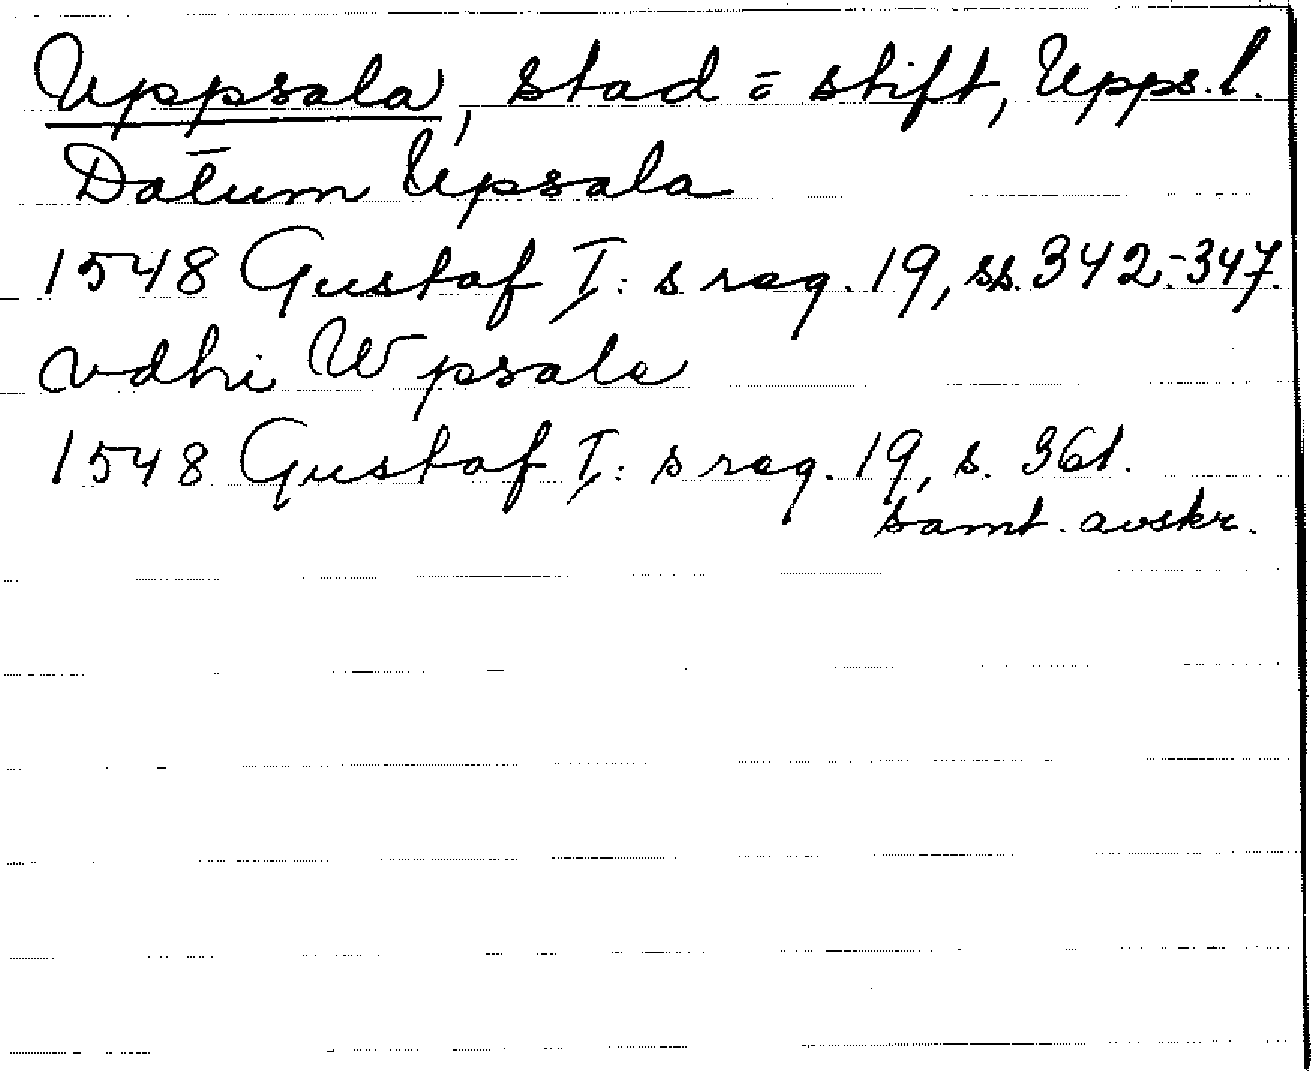 Uppsala, stad o stift, Upps. l.
Datum Upsala
1548 Gustaf I: s reg. 19, ss. 342-347.
vdhi Wpsala
1548 Gustaf I: s reg. 19, s. 361.
samt. avskr.